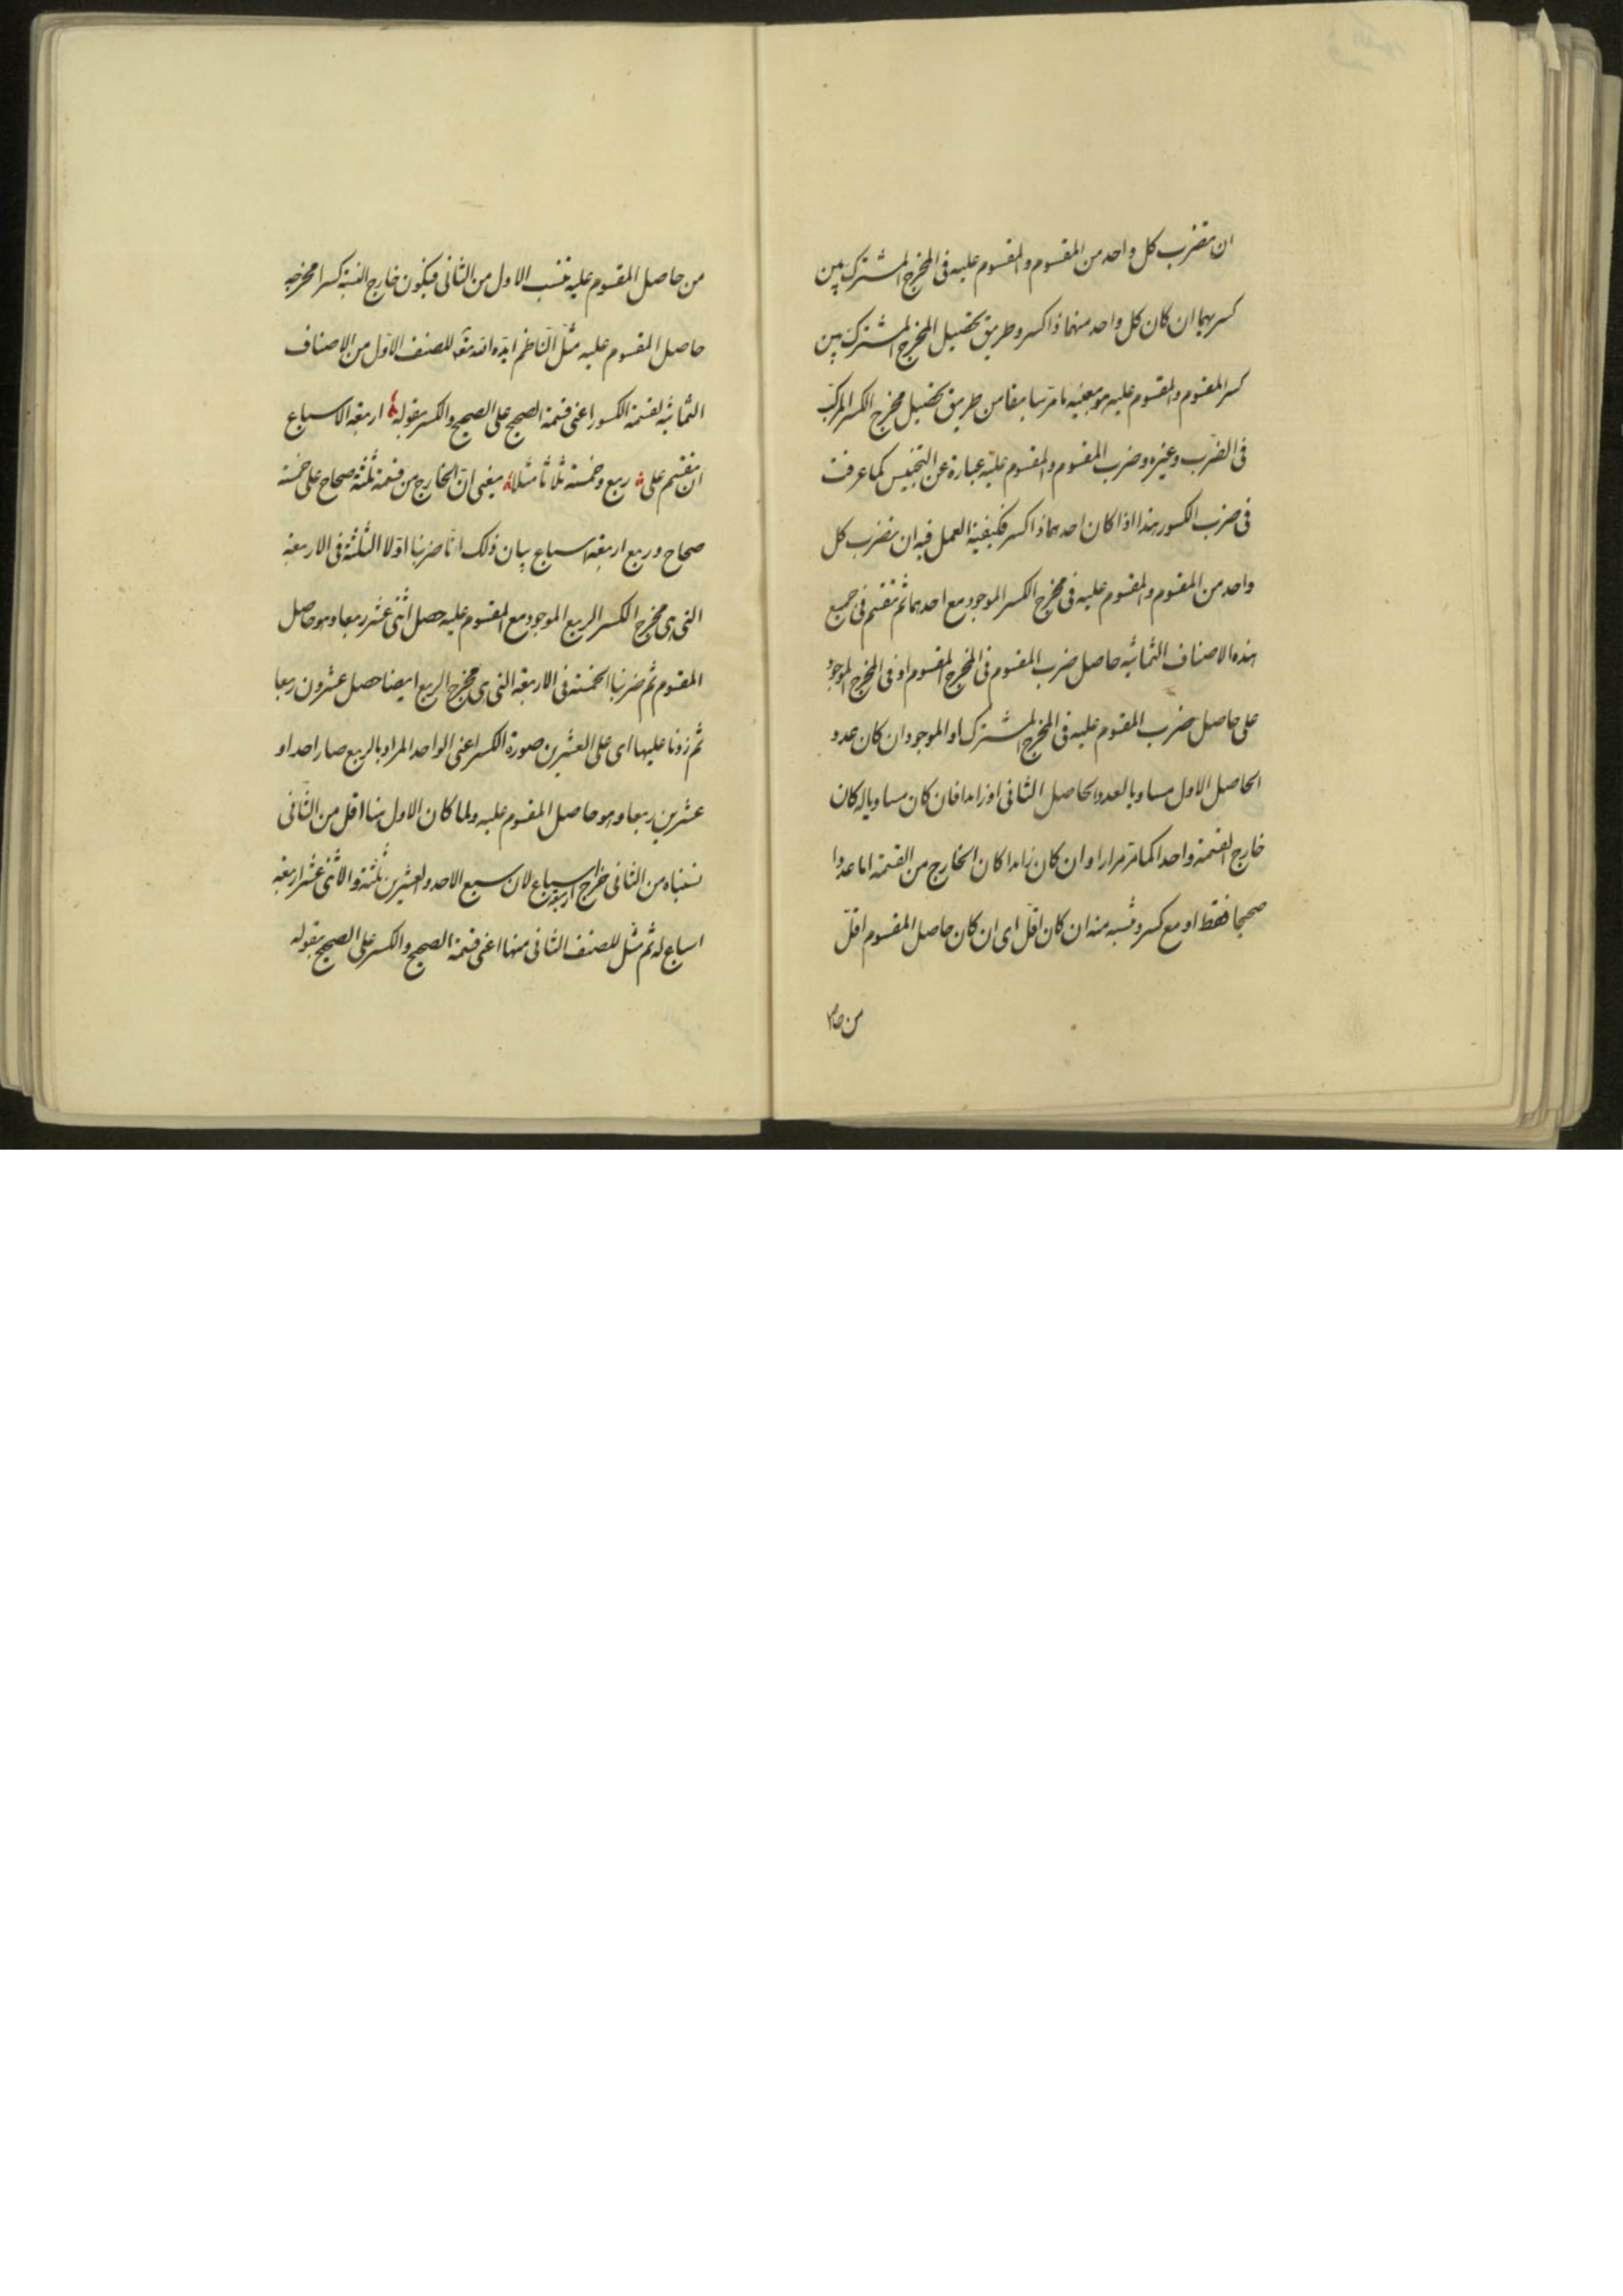 ان تضرب كل واحد من المقسوم والمقسوم عليه فى المخرج المشترك بين
كسريهما ان كان كل واحد منهما ذا كسر وطريق تحصيل المخرج المشترك بين
كسر المقسوم والمقسوم عليه هو بعينه ما مر سابقا من طريق تحصيل مخرج الكسر المركب
فى الضرب وغيره وضرب المقسوم والمقسوم عليه عبارة عن التجنيس كما عرفت
فى ضرب الكسور هذا اذا كان احدهما ذا كسر فكيفية العمل فيه ان تضرب كل
واحد من المقسوم والمقسوم عليه فى مخرج الكسر الموجود مع احدهما ثم تقسم فى جميع
هذه الاصناف الثمانيه حاصل ضرب المقسوم فى المخرج المقسوم او فى المخرج الموجود
على حاصل ضرب المقسوم عليه فى المخرج المشترك او الموجود ان كان عدد
الحاصل الاول مساويا لعدد الحاصل الثانى او زايدا فان كان مساويا له كان
خارج القسمة واحدا كما مر مرارا وان كان زايدا كان الخارج من القسمة اما عددا
صحيحا فقط او مع كسر وتنسبه منه ان كان اقل اى ان كان حاصل المقسوم اقل
من حاصل
من حاصل المقسوم عليه تنسب الاول من الثانى فيكون خارج النسبة كسرا مخرجه
حاصل المقسوم عليه مثل الناظم ايده الله تعه للصنف الاول من الاصناف
الثمانيه لقسمة الكسور اعنى قسمة الصحيح على الصحيح والكسر بقوله اربعة الاسباع
ان تقسم على ربع وخمسة ثلاثا مثلا يعنى ان الخارج من قسمة ثلثة صحاح على خمسة
صحاح وربع اربعة اسباع بيان ذلك انا ضربنا اولا الثلثة فى الاربعة
التى هى مخرج الكسر الربع الموجود مع المقسوم عليه حصل اثنى عشر ربعا وهو حاصل
المقسوم ثم ضربنا الخمسة فى الاربعة التى هى مخرج الربع ايضا حصل عشرون ربعا
ثم زدنا عليها اى على العشرين صورة الكسر اعنى الواحد المراد بالربع صار احدا و
عشرين ربعا وهو حاصل المقسوم عليه ولما كان الاول هنا اقل من الثانى
نسبناه من الثانى خرج اربعة اسباع لان سبع الاحد والعشرين ثلثة والاثنى عشر اربعة
اسباع له ثم مثل للصنف الثانى منها اعنى قسمة الصحيح والكسر على الصحيح بقوله